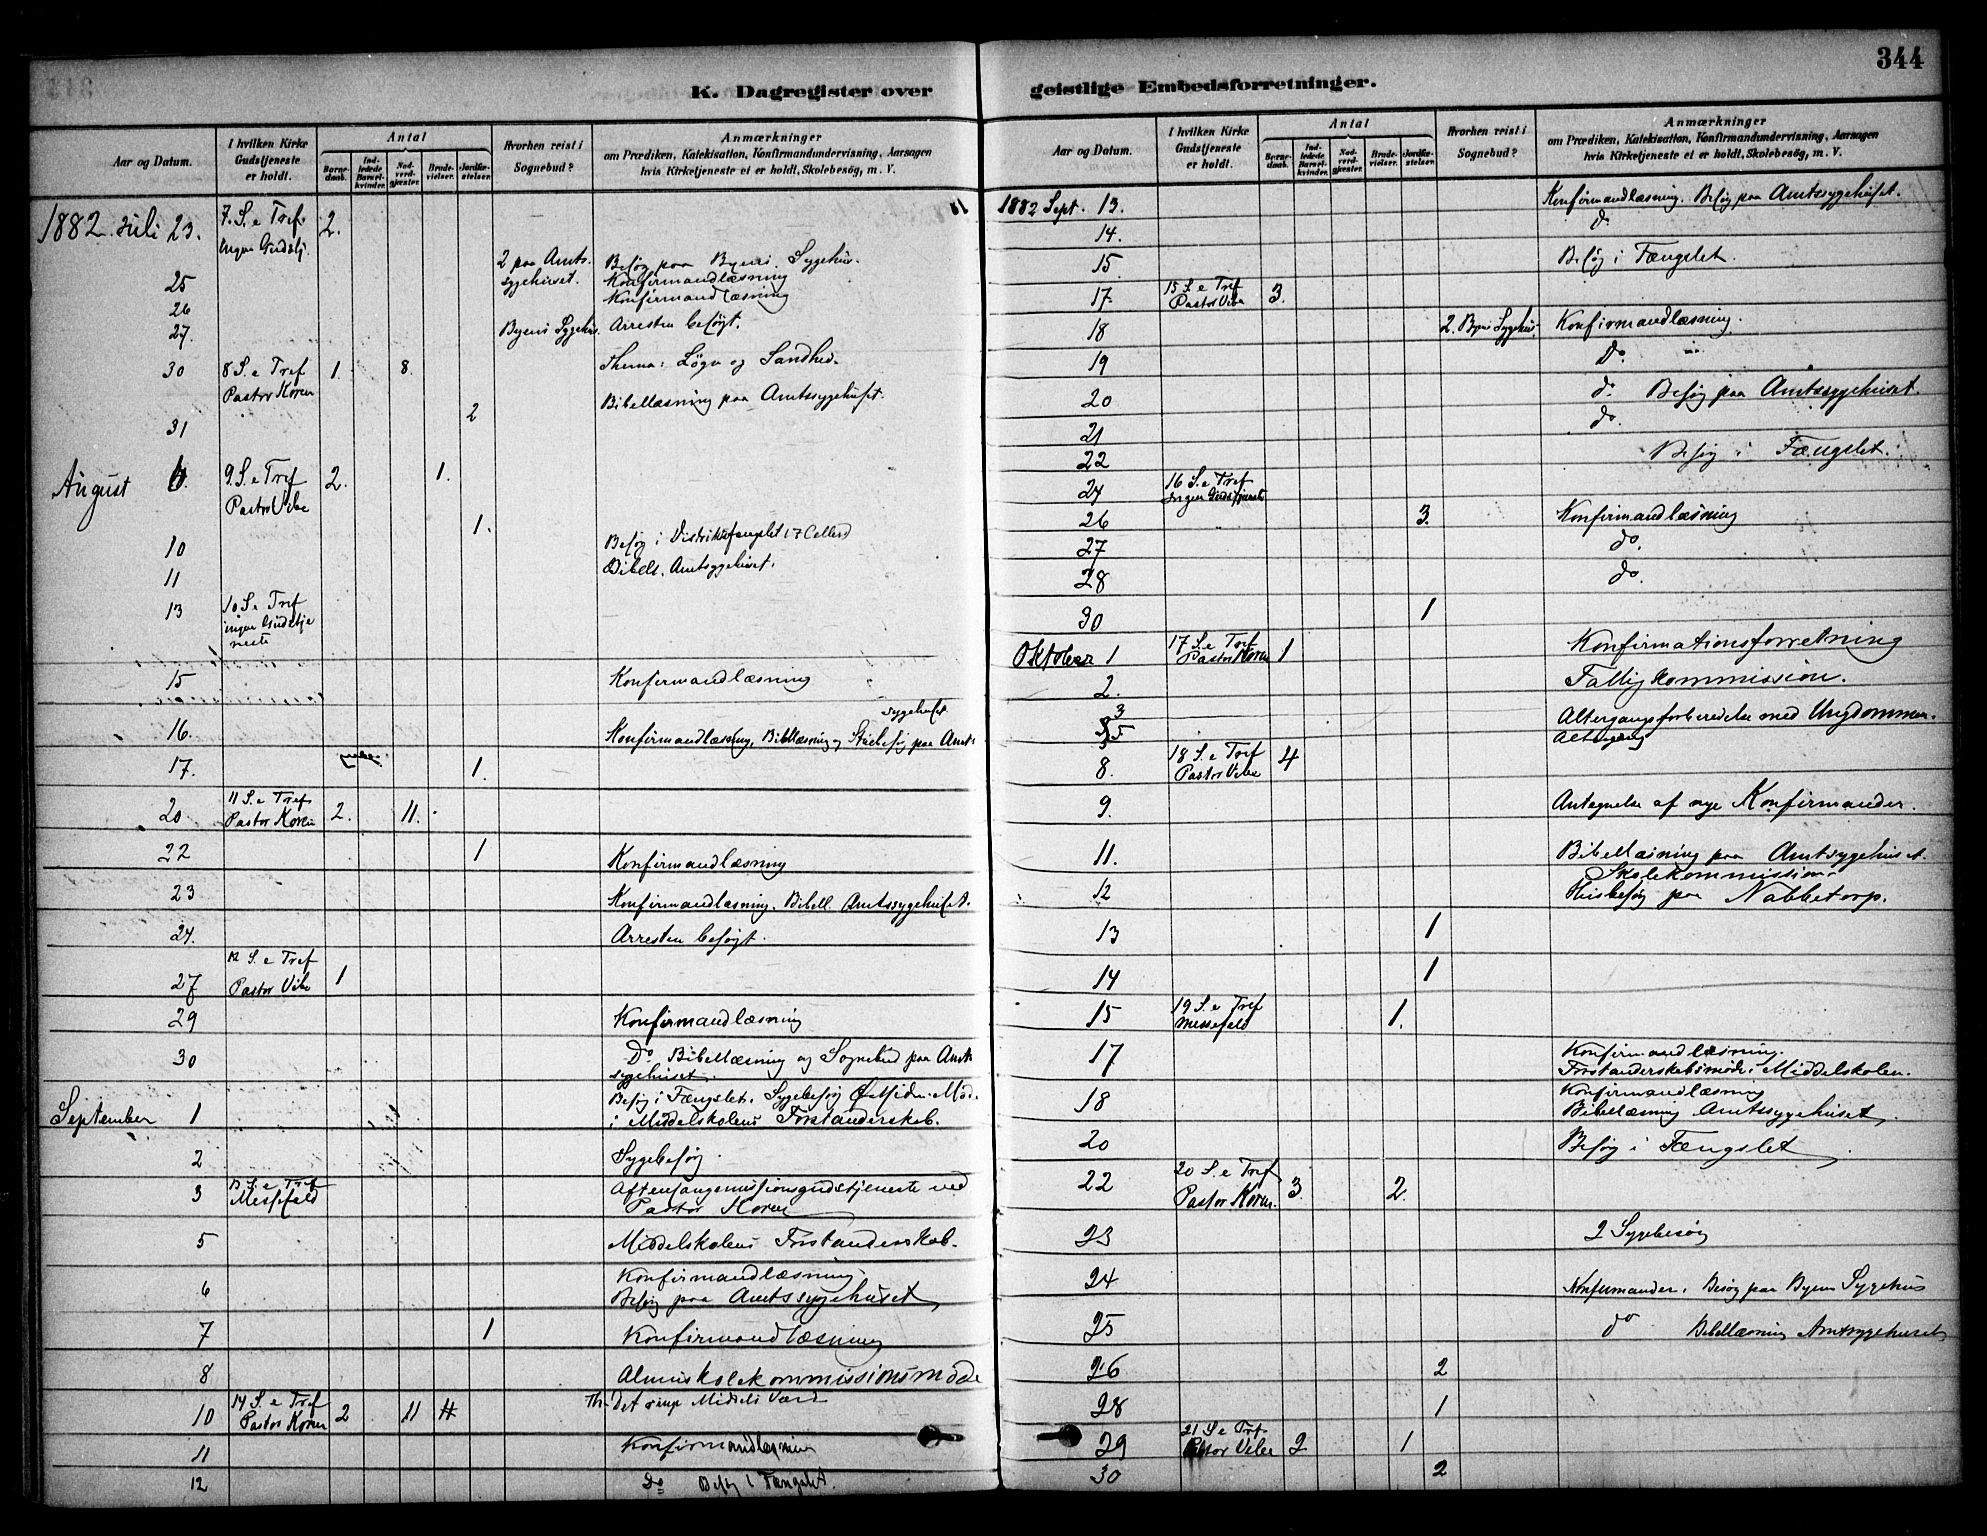 344
K. Dagregister over
geistlige Embedsforretninger.
Aar og Datum.
I hvilken Kirke Gudstjeneste er holdt.
Antal
Barnedaab.
Indledede Barselkvinder.
Nadverdgjester.
Brudevielser.
Jordfæstelser.
Hvorhen reist i Sognebud?
Anmærkninger
om Prædiken, Katekisation, Konfirmandundervisning, Aarsagen
hvis Kirketjeneste ei er holdt, Skolebesøg, m. V.
1882 Juli 23. 7. S. e Tref. 2.
Ingen Gudstj.
2 paa Amts. Besøg paa Byens Sygehus.
25 sygehuset. Konfirmandlæsning
26 Konfirmandlæsning
27. Byens Sygehus. Arresten besøgt.
30 8 S. e Tref 1. 8. Thema: Løgn og Sandhed.
Pastor Koren
Bibellæsning paa Amtssygehuset.
31 2
August 6. 9. S. e Tref 2. 1.
Pastor Vibe
10 1. Besøg i Distriktsfængslet (7 Celler)
11 Bibell. Amtsygehuset.
13 10 S. e Tref
ingen Gudstje
neste
15 Konfirmandlæsning
sygehuset
16. Konfirmandlæsning, Bibellæsning og paa Amts
17. 1.
20 11 S. e Tref 2. 11.
Pastor Koren
22 1 Konfirmandlæsning
23 Konfirmandlæsning. Bibell. Amtssygehuset.
24. Arresten besøgt.
12 S. e Tref
27 Pastor Vibe 1
29 Konfirmandlæsning
30 Do Bibellæsning og Sognebud paa Amts
sygehuset.
September 1 Besøg i Fængslet. Sygebesøg Østsiden. Møde
i Middelskolens Forstanderskab.
2 Sygebesøg.
3 13 S. e Tref Aftensangsmissionsgudstjeneste ved
Messefald Pastor Koren
5 Middelskolens Forstanderskab.
6 Konfirmandlæsning.
Besøg paa Amtssygehuset
7 1 Konfirmandlæsning
8 Almuskolekommissionsmøde
10 14 S. e Tref 2 11 Th. Det Middels Værd
Pastor Koren
11 Konfirmandlæsning
12 Do Besøg i Fængslet.
Aar og Datum.
I hvilken Kirke Gudstjeneste er holdt.
Antal
Barnedaab.
Indledede Barselkvinder.
Nadverdgjester.
Brudevielser.
Jordfæstelser.
Hvorhen reist i Sognebud?
Anmærkninger
om Prædiken, Katekisation, Konfirmandundervisning, Aarsagen
hvis Kirketjeneste ei er holdt, Skolebesøg, m. V.
1882 Sept. 13. Konfirmandlæsning. Besøg paa Amtssygehuset.
14. do
15. Besøg i Fængslet.
17. 15 S. e Tref 3.
Pastor Vibe
18 2. Byens Sygehus. Konfirmandlæsning.
19 Do.
20 do Besøg paa Amtssygehuset.
21 do.
22 Besøg i Fængslet.
24 16 S. e Tref
Ingen Gudstjeneste
26 3. Konfirmandlæsning
27 do.
28 do.
30 1
Oktober 1 17 S. e Tref 1 Konfirmationsforretning
Pastor Koren
2. Fattigkommission.
3 Altergangsforberedelse med Ungdommen.
5 Altergang
8. 18 S. e Tref 4
Pastor Vibe
9. Antegnelse af nye Konfirmander.
11. Bibellæsning paa Amtsygehuset.
Skolekommission
12 Husbesøg paa Nabbetorp.
13 1
14 1
15 19 S. e Tref 1.
Messefald
17 Konfirmandlæsning.
Forstanderskabsmøde i Middelskolen.
18 Konfirmandlæsning
Bibellæsning Amtssygehuset.
20 Besøg i Fængslet
22 20 S. e Tref 3. 2.
Pastor Koren.
23 2 Sygebesøg
24 Konfirmander. Besøg paa Byens Sygehus
25 do Bibellæsning Amtssygehuset
26 2
28 1
29 21 S. e Tref. 2 1
Pastor Vibe
30 2